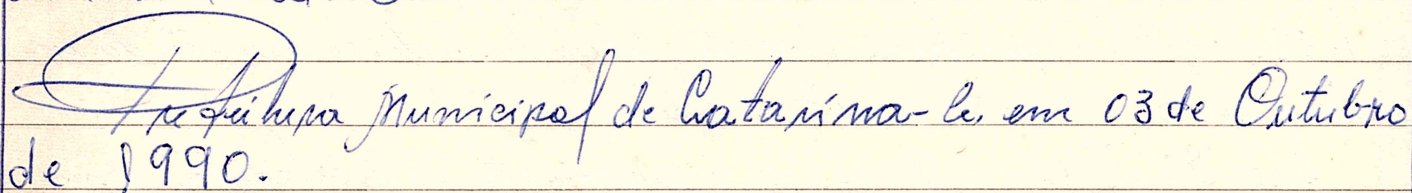 Prefeitura Municipal de Catarina-Ce. em 03 de Outubro
de 1990.